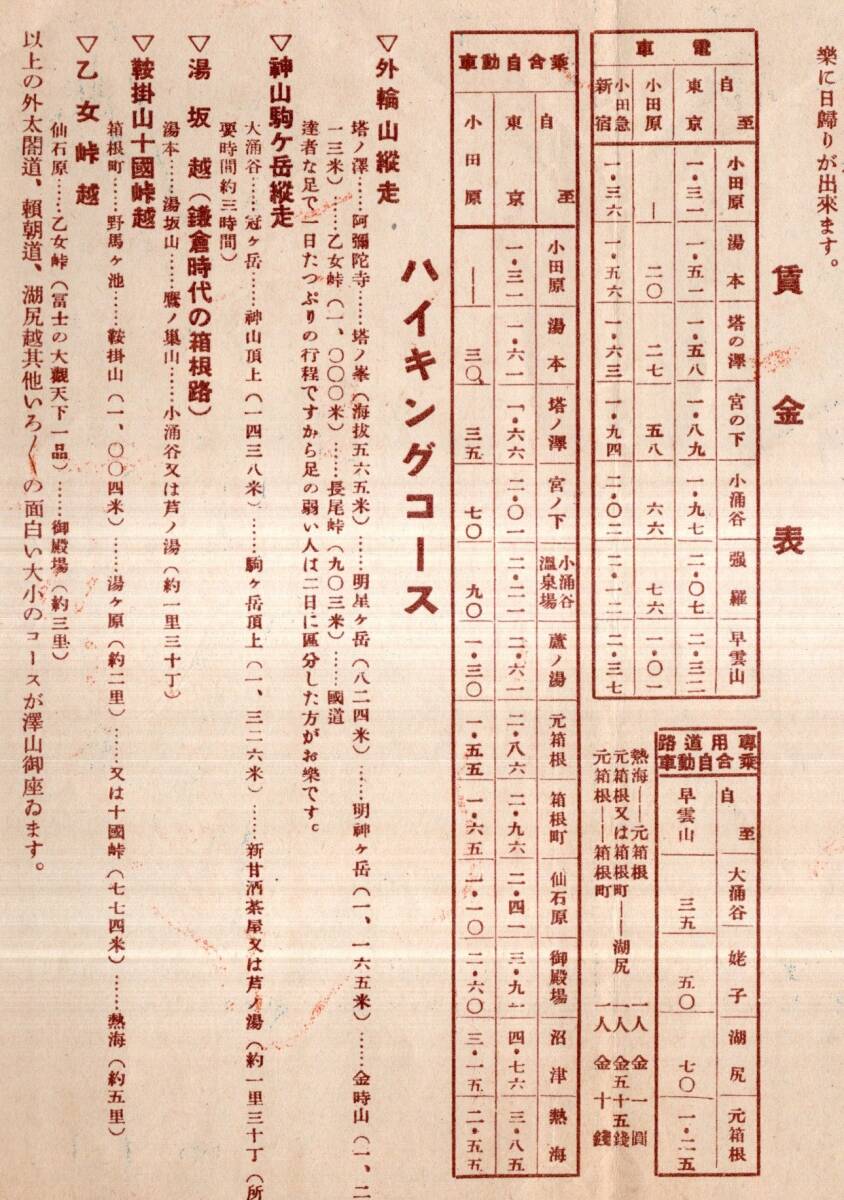 樂に日歸りが出來ます。
賃金表
電車
自 至 小田原 湯本 塔の澤 宮の下 小涌谷 强羅 早雲山
東京 一・三一 一・五一 一・五八 一・八九 一・九七 二・〇七 二・三二
小田原 — 二〇 二七 五八 六六 七六 一・〇一
小田急新宿 一・三六 一・五六 一・六三 一・九四 二・〇二 二・一二 二・三七
專用道路乘合自動車
自 至 大涌谷 姥子 湖尻 元箱根
早雲山 三五 五〇 七〇 一・二五
熱海——元箱根 一人 金一圓
元箱根又は箱根町——湖尻 一人 金五十五錢
元箱根——箱根町 一人 金十錢
乘合自動車
自 至 小田原 湯本 塔ノ澤 宮ノ下 小涌谷溫泉場 蘆ノ湯 元箱根 箱根町 仙石原 御殿場 沼津 熱海
東京 一・三一 一・六一 一・六六 二・〇一 二・二一 二・六一 二・八六 二・九六 二・四一 三・九一 四・七六 三・八五
小田原 — 三〇 三五 七〇 九〇 一・三〇 一・五五 一・六五 一・一〇 二・六〇 三・一五 二・五五
ハイキングコース
▽外輪山縱走
塔ノ澤……阿彌陀寺……塔ノ峯(海拔五六五米)……明星ヶ岳(八二四米)……明神ヶ岳(一、一六五米)……金時山(一、二
一三米)……乙女峠(一、〇〇〇米)……長尾峠(九〇三米)……國道
達者な足で一日たつぷりの行程ですから足の弱い人は二日に區分した方がお樂です。
▽神山駒ヶ岳縱走
大涌谷……冠ヶ岳……神山頂上(一四三八米)……駒ヶ岳頂上(一、三二六米)……新甘酒茶屋又は芦ノ湯(約一里三十丁(所
要時間約三時間)
▽湯坂越(鎌倉時代の箱根路)
湯本……湯坂山……鷹ノ巢山……小涌谷又は芦ノ湯(約一里三十丁)
▽鞍掛山十國峠越
箱根町……野馬ヶ池……鞍掛山(一、〇〇四米)……湯ヶ原(約二里)……又は十國峠(七七四米)……熱海(約五里)
▽乙女峠越
仙石原……乙女峠(富士の大觀天下一品)……御殿場(約三里)
以上の外太閤道、賴朝道、湖尻越其他いろ〳〵の面白い大小のコースが澤山御座ゐます。